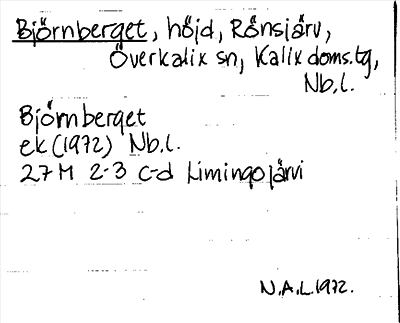 Björnberget, höjd, Rönsjärv,
Överkalix sn, Kalix doms.tg,
Nb.l.
Björnberget
ek (1972) Nb.l.
27 M 2-3 c-d Limingojärvi
N.A.L. 1972.